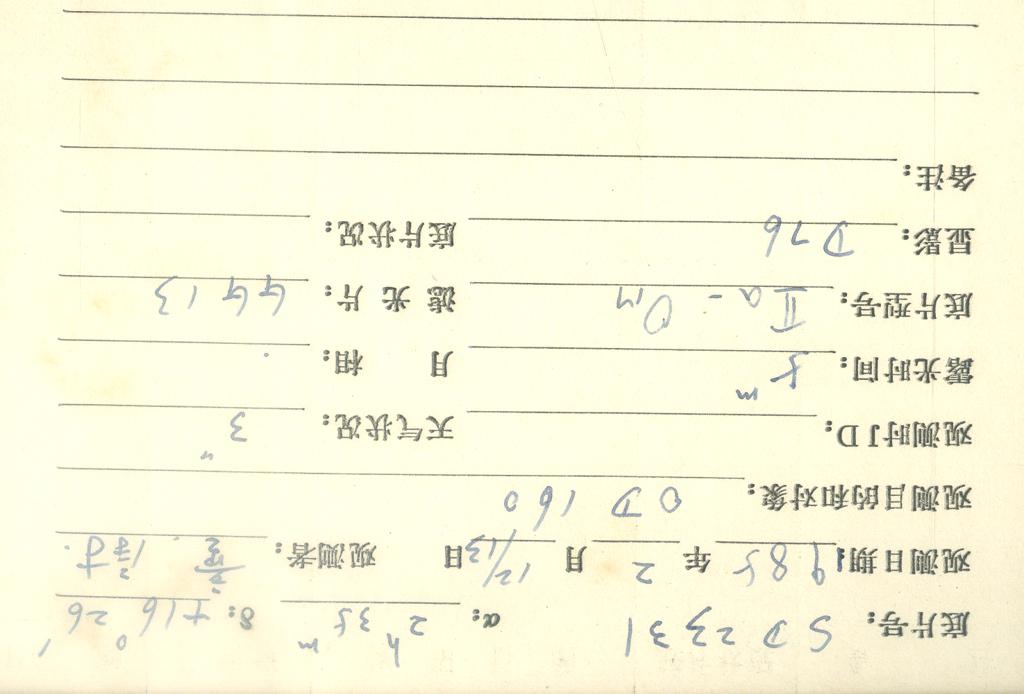 底片号: SD2331 α: 2h 35m δ: +16° 26′
观测日期: 1985年 2月 12/13日 观测者:
观测目的和对象: OD 160
观测时JD: 天气状况: 3″
露光时间: 5m 月 相:
底片型号: IIa-O 滤光片: GG13
显影: D76 底片状况:
备注: